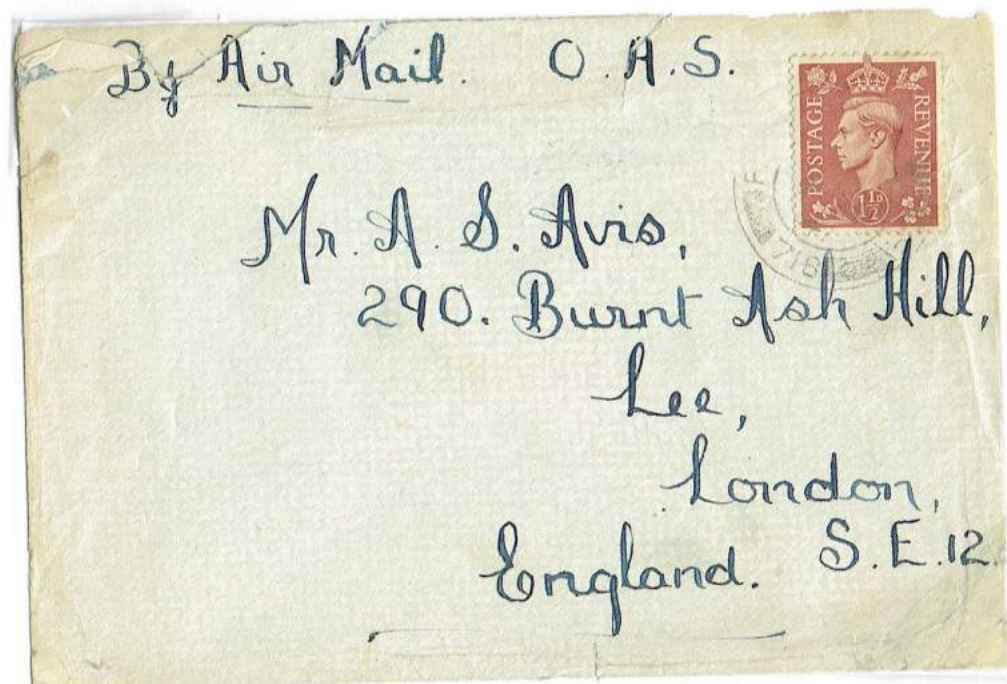 By Air Mail. O.A.S.
POSTAGE REVENUE
1½D
718
Mr. A. S. Avis,
290. Burnt Ash Hill,
Lee,
London,
S.E.12.
England.